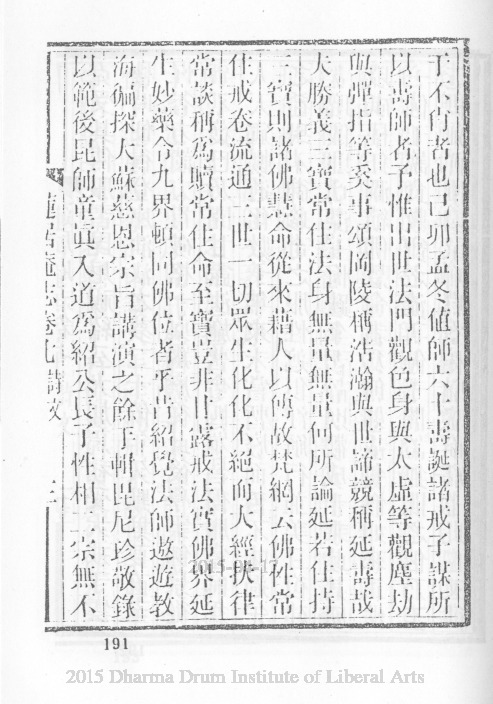 于不肖者也己卯孟冬值師六十壽誕諸戒子謀所
以壽師者予惟出世法門觀色身與太虛等觀塵劫
與彈指等奚事頌岡陵稱浩瀚與世諦競稱延壽哉
大勝義三寶常住法身無量無量何所論延若住持
三寶則諸佛慧命從來藉人以傳故梵網云佛性常
住戒卷流通三世一切眾生化化不絕而大經扶律
常談稱為贖常住命至寶豈非甘露戒法實佛界延
生妙藥令九界頓同佛位者乎昔紹覺法師遨遊教
海徧探大蘇慈恩宗旨講演之餘手輯毘尼珍敬錄
以範後昆師童真入道為紹公長子性相二宗無不
蓮居庵志卷七 三
191
2015-03-17
2015 Dharma Drum Institute of Liberal Arts